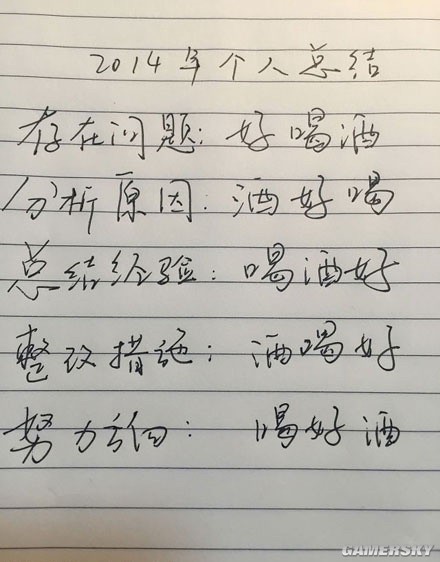 2014年个人总结
存在问题：好喝酒
分析原因：酒好喝
总结经验：喝酒好
整改措施：酒喝好
努力方向：喝好酒
GAMERSKY